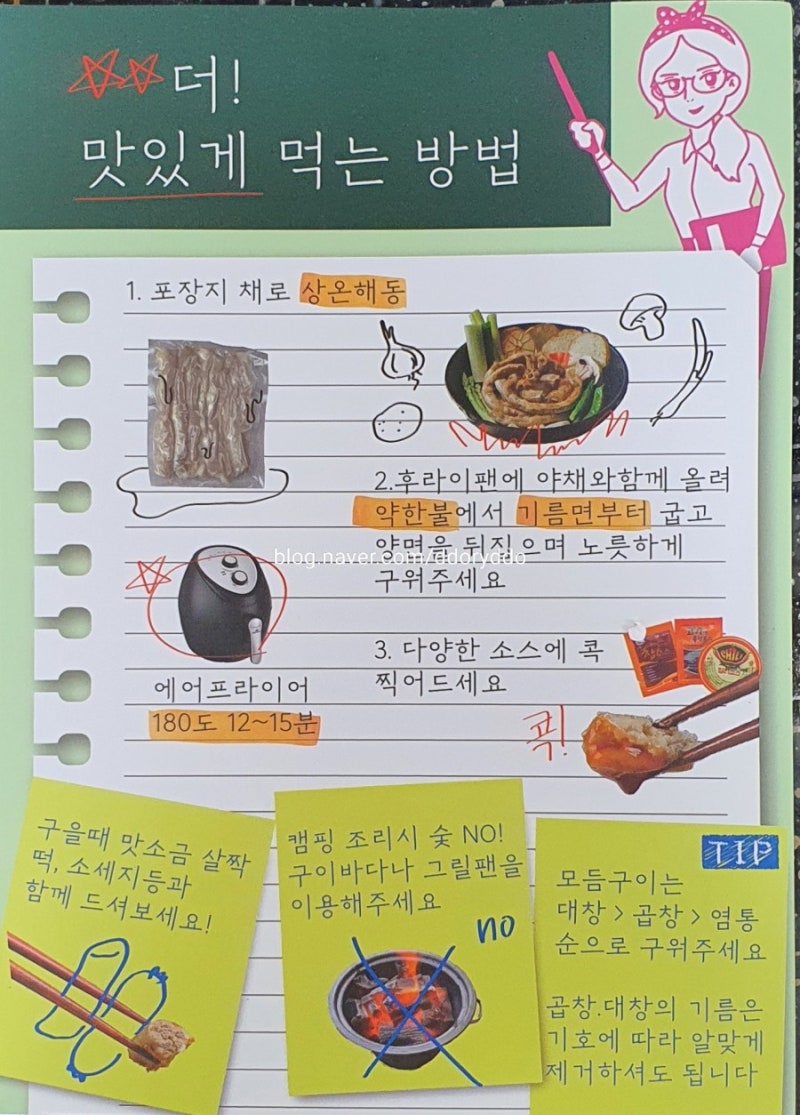 더!
맛있게 먹는 방법
1. 포장지 채로 상온해동
2.후라이팬에 야채와함께 올려
약한불에서 기름면부터 굽고
양면을 뒤집으며 노릇하게
구워주세요
blog.naver.com/ddoryddo
에어프라이어
180도 12~15분
3. 다양한 소스에 콕
찍어드세요
CHILI
콕!
구울때 맛소금 살짝
떡, 소세지등과
함께 드셔보세요!
캠핑 조리시 숯 NO!
구이바다나 그릴팬을
이용해주세요
NO
TIP
모듬구이는
대창 > 곱창 > 염통
순으로 구워주세요
곱창.대창의 기름은
기호에 따라 알맞게
제거하셔도 됩니다